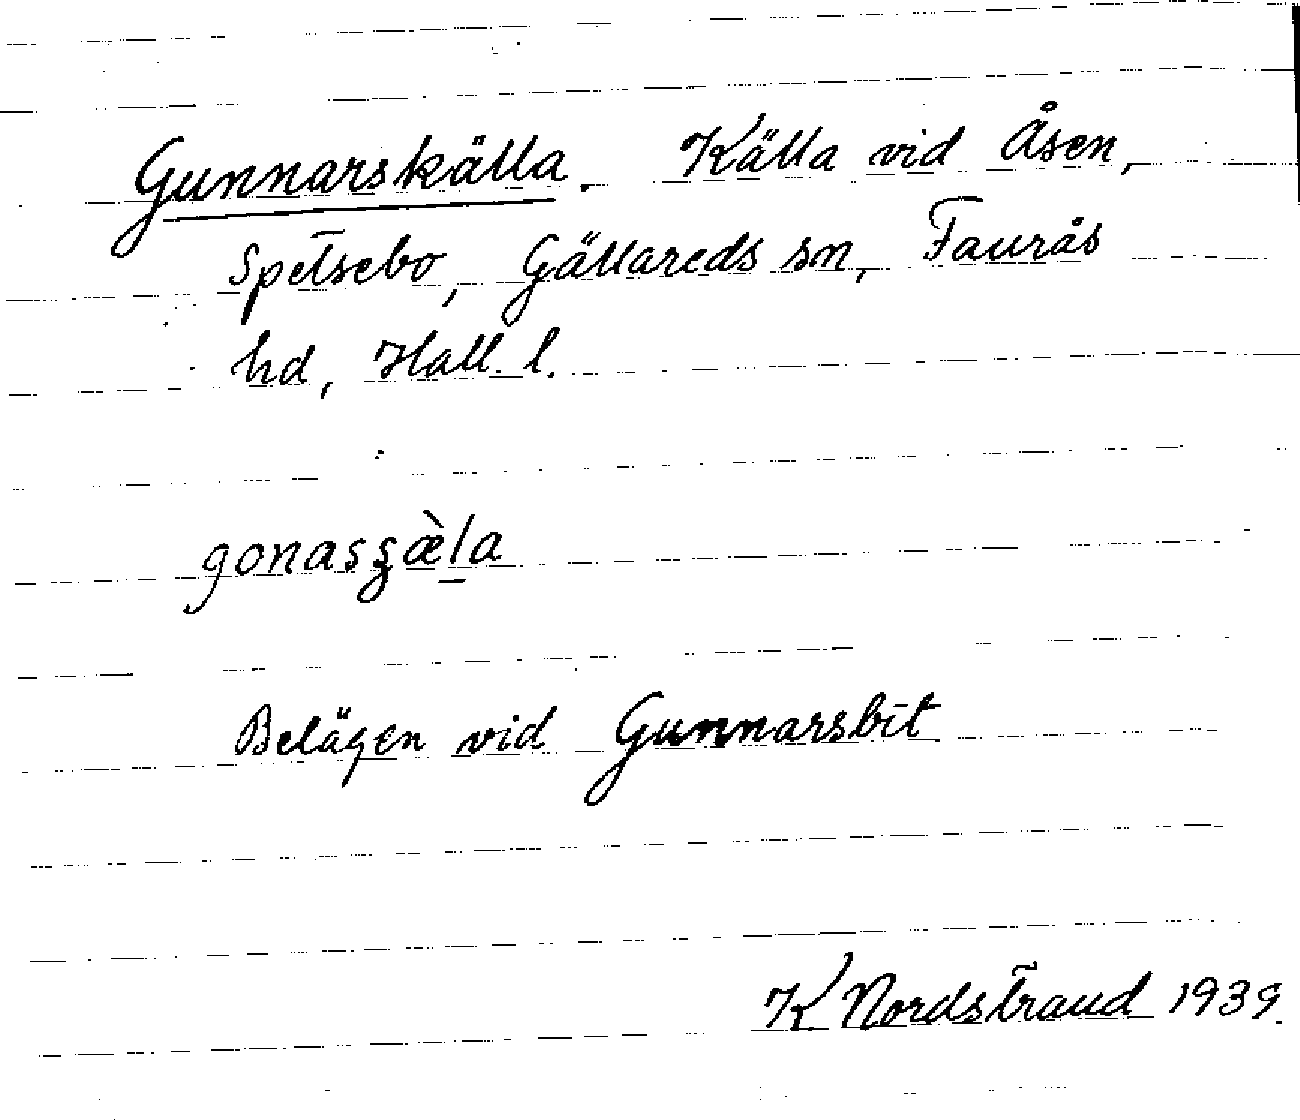 Gunnarskälla. Källa vid Åsen,
Spetsebo, Gällareds sn, Faurås
hd, Hall. l.
gonasʂæ̀l̲a
Belägen vid Gunnarsbit
K Nordstrand 1939.